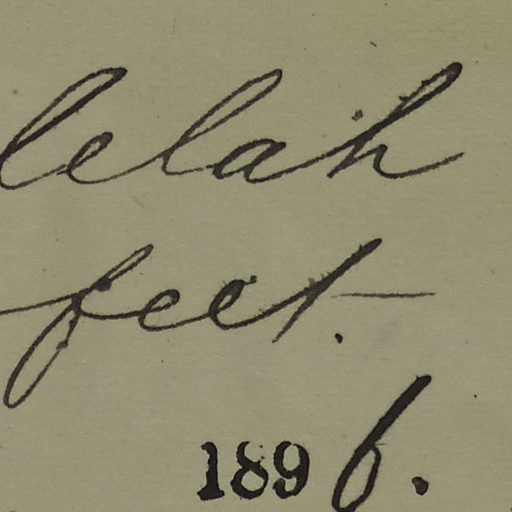 lelah
feet.
1896.